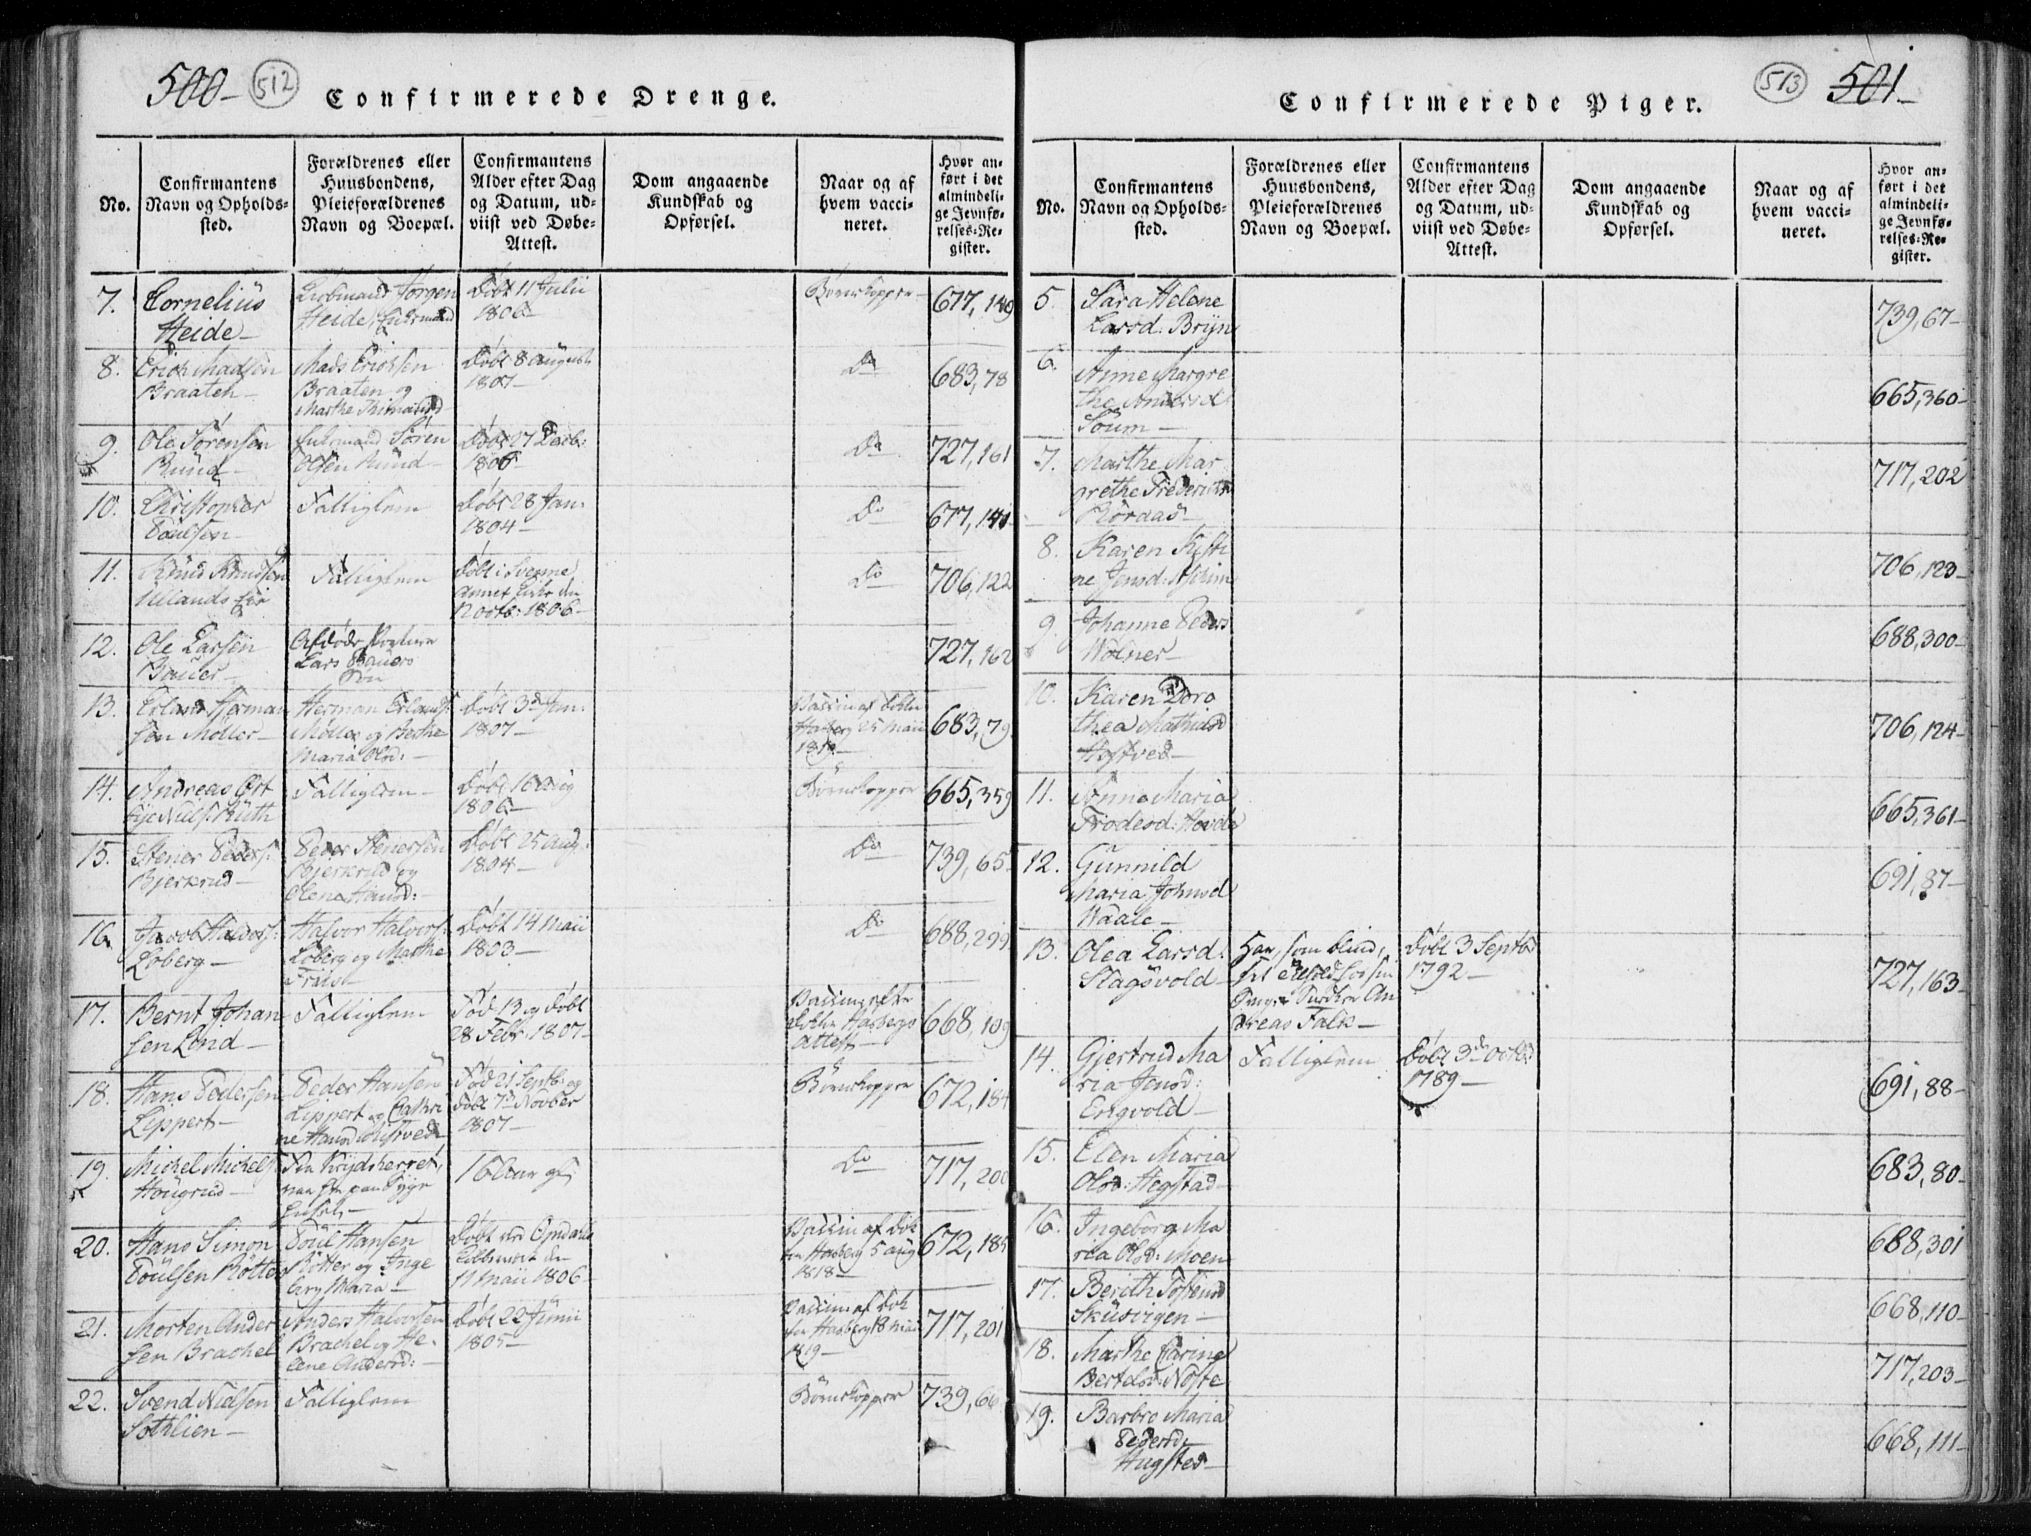 500-
512
Confirmerede Drenge.
No.
Confirmantens
Navn og Opholds-
sted.
Forældrenes eller
Huusbondens,
Pleieforældrenes
Navn og Boepæl.
Confirmantens
Alder efter Dag
og Datum, ud-
viist ved Døbe-
Attest.
Dom angaaende
Kundskab og
Opførsel.
Naar og af
hvem vacci-
neret.
Hvor an-
ført i det
almindeli-
ge Jevnfø-
relses-Re-
gister.
7.
Cornelius
Heide-
Jørgen
Heide,
Døbt 11 Julii
1806-
Børnekopper-
677, 149
8.
Erich Madsen
Braaten-
Mads Erichsen
Braaten og
Marthe
Døbt 8 august
1807-
Do
683, 78
9.
Ole Sørensen
Rund-
Søren
Olsen Rund-
Døbt 27 Decb:
1806-
Do
727, 161
10.
Christopher
Poulsen-
Falliglem
Døbt 28 Jan:
1804-
Do
677,
11.
Knud Knudsen
Ullands Eie
Falliglem
Døbt i Svenne
annex Kirke den
1806-
Do
706, 122
12.
Ole Larsen
Bauer-
Afdøde
Lars Bauers
Søn
727, 162
13.
Erland Herman
sen Møller-
Herman Erlands:
Møller og Berthe
Maria Olsd:-
Døbt 3de Jan:
1807-
Vaccin af Dokter
25 Maii
683, 79
14.
Andreas Øst
bye Niels: Ruth
Falliglem-
Døbt 16 aug
1806-
Børnekopper
665, 359
15.
Stener Peders:
Bjerkrud-
Peder Stenersen
Bjerkrud og
Olena Hansd:
Døbt 25 aug:
1804-
Do
739, 65-
16.
Jacob Halvors:
Loberg-
Halvor Halvors:
Loberg og Marthe
Friis-
Døbt 14 Maii
1803-
Do
688, 299
17.
Bernt Johan
sen Lond-
Falliglem
Fød 13 og Døbt
28 Febr: 1807-
Vaccin: efter
Dokter Hasbergs
Attest-
668, 109
18.
Hans Pedersen
Leppert-
Peder Hansen
Leppert og Cathri
ne Hansd
Fød 21 Septb: og
Døbt 7de Novber
1807-
Børnekopper
672, 184
19.
Michel Michels:
Hougrud-
16 Aar gl:
Do
717, 200
20.
Hans Simon
Poulsen Rotter
Poul Hansen
Rotter og Inge
borg Maria-
Døbt ved
den
11 Maii 1806-
Vaccin af Dok
ter Hasberg 5 aug
1818-
672, 185
21.
Morten Ander
sen Brachel
Anders Halvorsen
Brachel og He-
lene Andersd:-
Døbt 22 Junii
1805-
Vaccin af Dok
ter Hasberg 18 Maii
1819-
717, 201
22.
Svend Nielsen
Sothlien-
Falliglem
Børnekopper
739, 66
513
501-
Confirmerede Piger.
No.
Confirmantens
Navn og Opholds-
sted.
Forældrenes eller
Huusbondens,
Pleieforældrenes
Navn og Boepæl.
Confirmantens
Alder efter Dag
og Datum, ud-
viist ved Døbe-
Attest.
Dom angaaende
Kundskab og
Opførsel.
Naar og af
hvem vacci-
neret.
Hvor an-
ført i det
almindeli-
ge Jevnfø-
relses-Re-
gister.
5.
Sara Helene
Larsd: Bryn
739, 67-
6.
Anne Margre
the Andersd
Soum-
665, 360-
7.
Marthe Mar
grethe
Roraas-
717, 202
8.
Karen Kisti
ne Jensd:
706, 123-
9.
Johanne Peders
Wolner-
688, 300-
10.
Karen Doro
thea Mathiasd
706, 124-
11.
Anna Maria
Frodesd: Hovde
665, 361-
12.
Gunnild
Maria Johnsd
Waale-
691, 87-
13.
Olea Larsd:
Stagsvold-
Har, som blind,
Andreas Falk-
Døbt 3 Septb
1792-
727, 163-
14.
Gjertrud Ma
ria Jensd:
Engvold-
Falliglem
Døbt 3de Octob
1789-
691, 88-
15.
Elen Maria
Olsd: Hegstad-
683, 80-
16.
Ingeborg Ma
ria Olsd: Moen
688, 301
17.
Berith Tostensd
Skusvigen-
668, 110-
18.
Marthe Carine
Bertelsd: Noste
717, 203-
19.
Barbro Maria
Pedersd:
Hugsted-
668, 111-